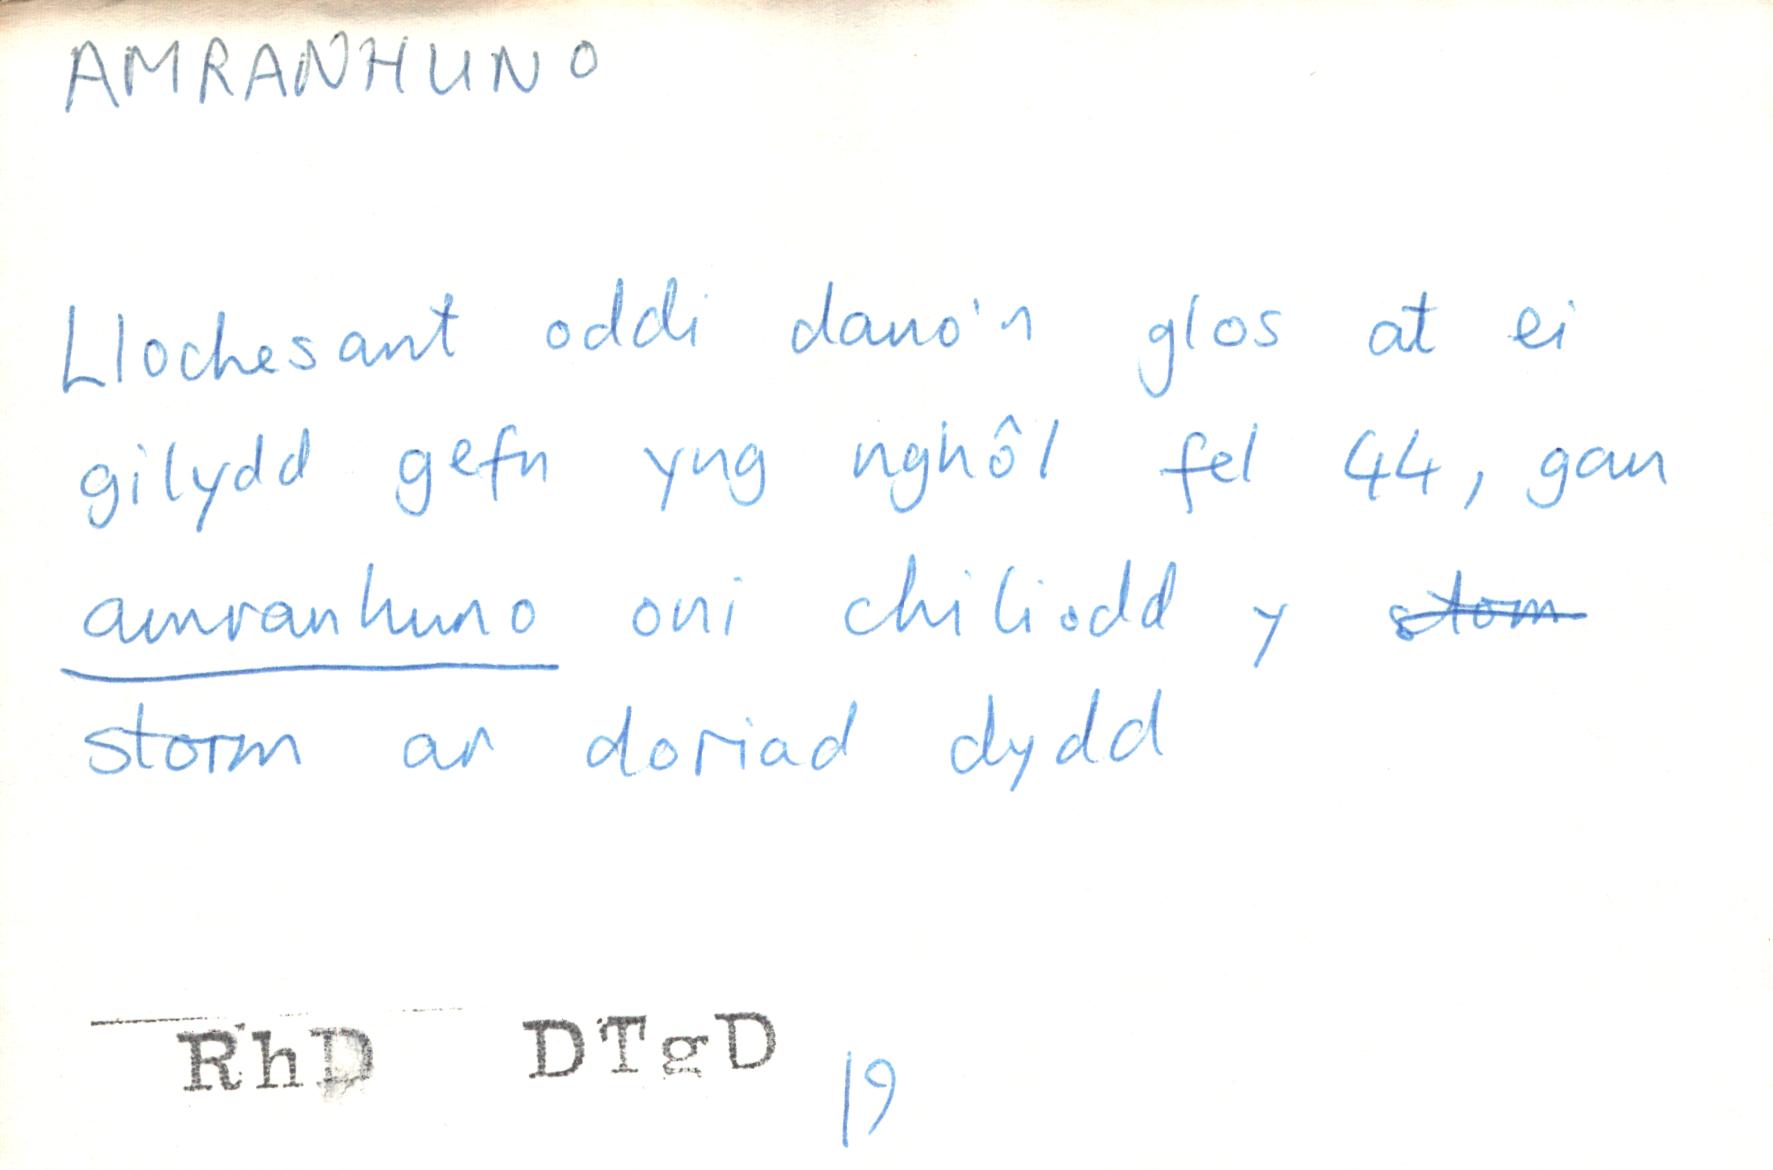 AMRANHUNO
Llochesant oddi dano'n glos at ei
gilydd gefn yng nghôl fel 44, gan
amranhuno oni chiliodd y stom
storm ar doriad dydd
RhD DTgD 19